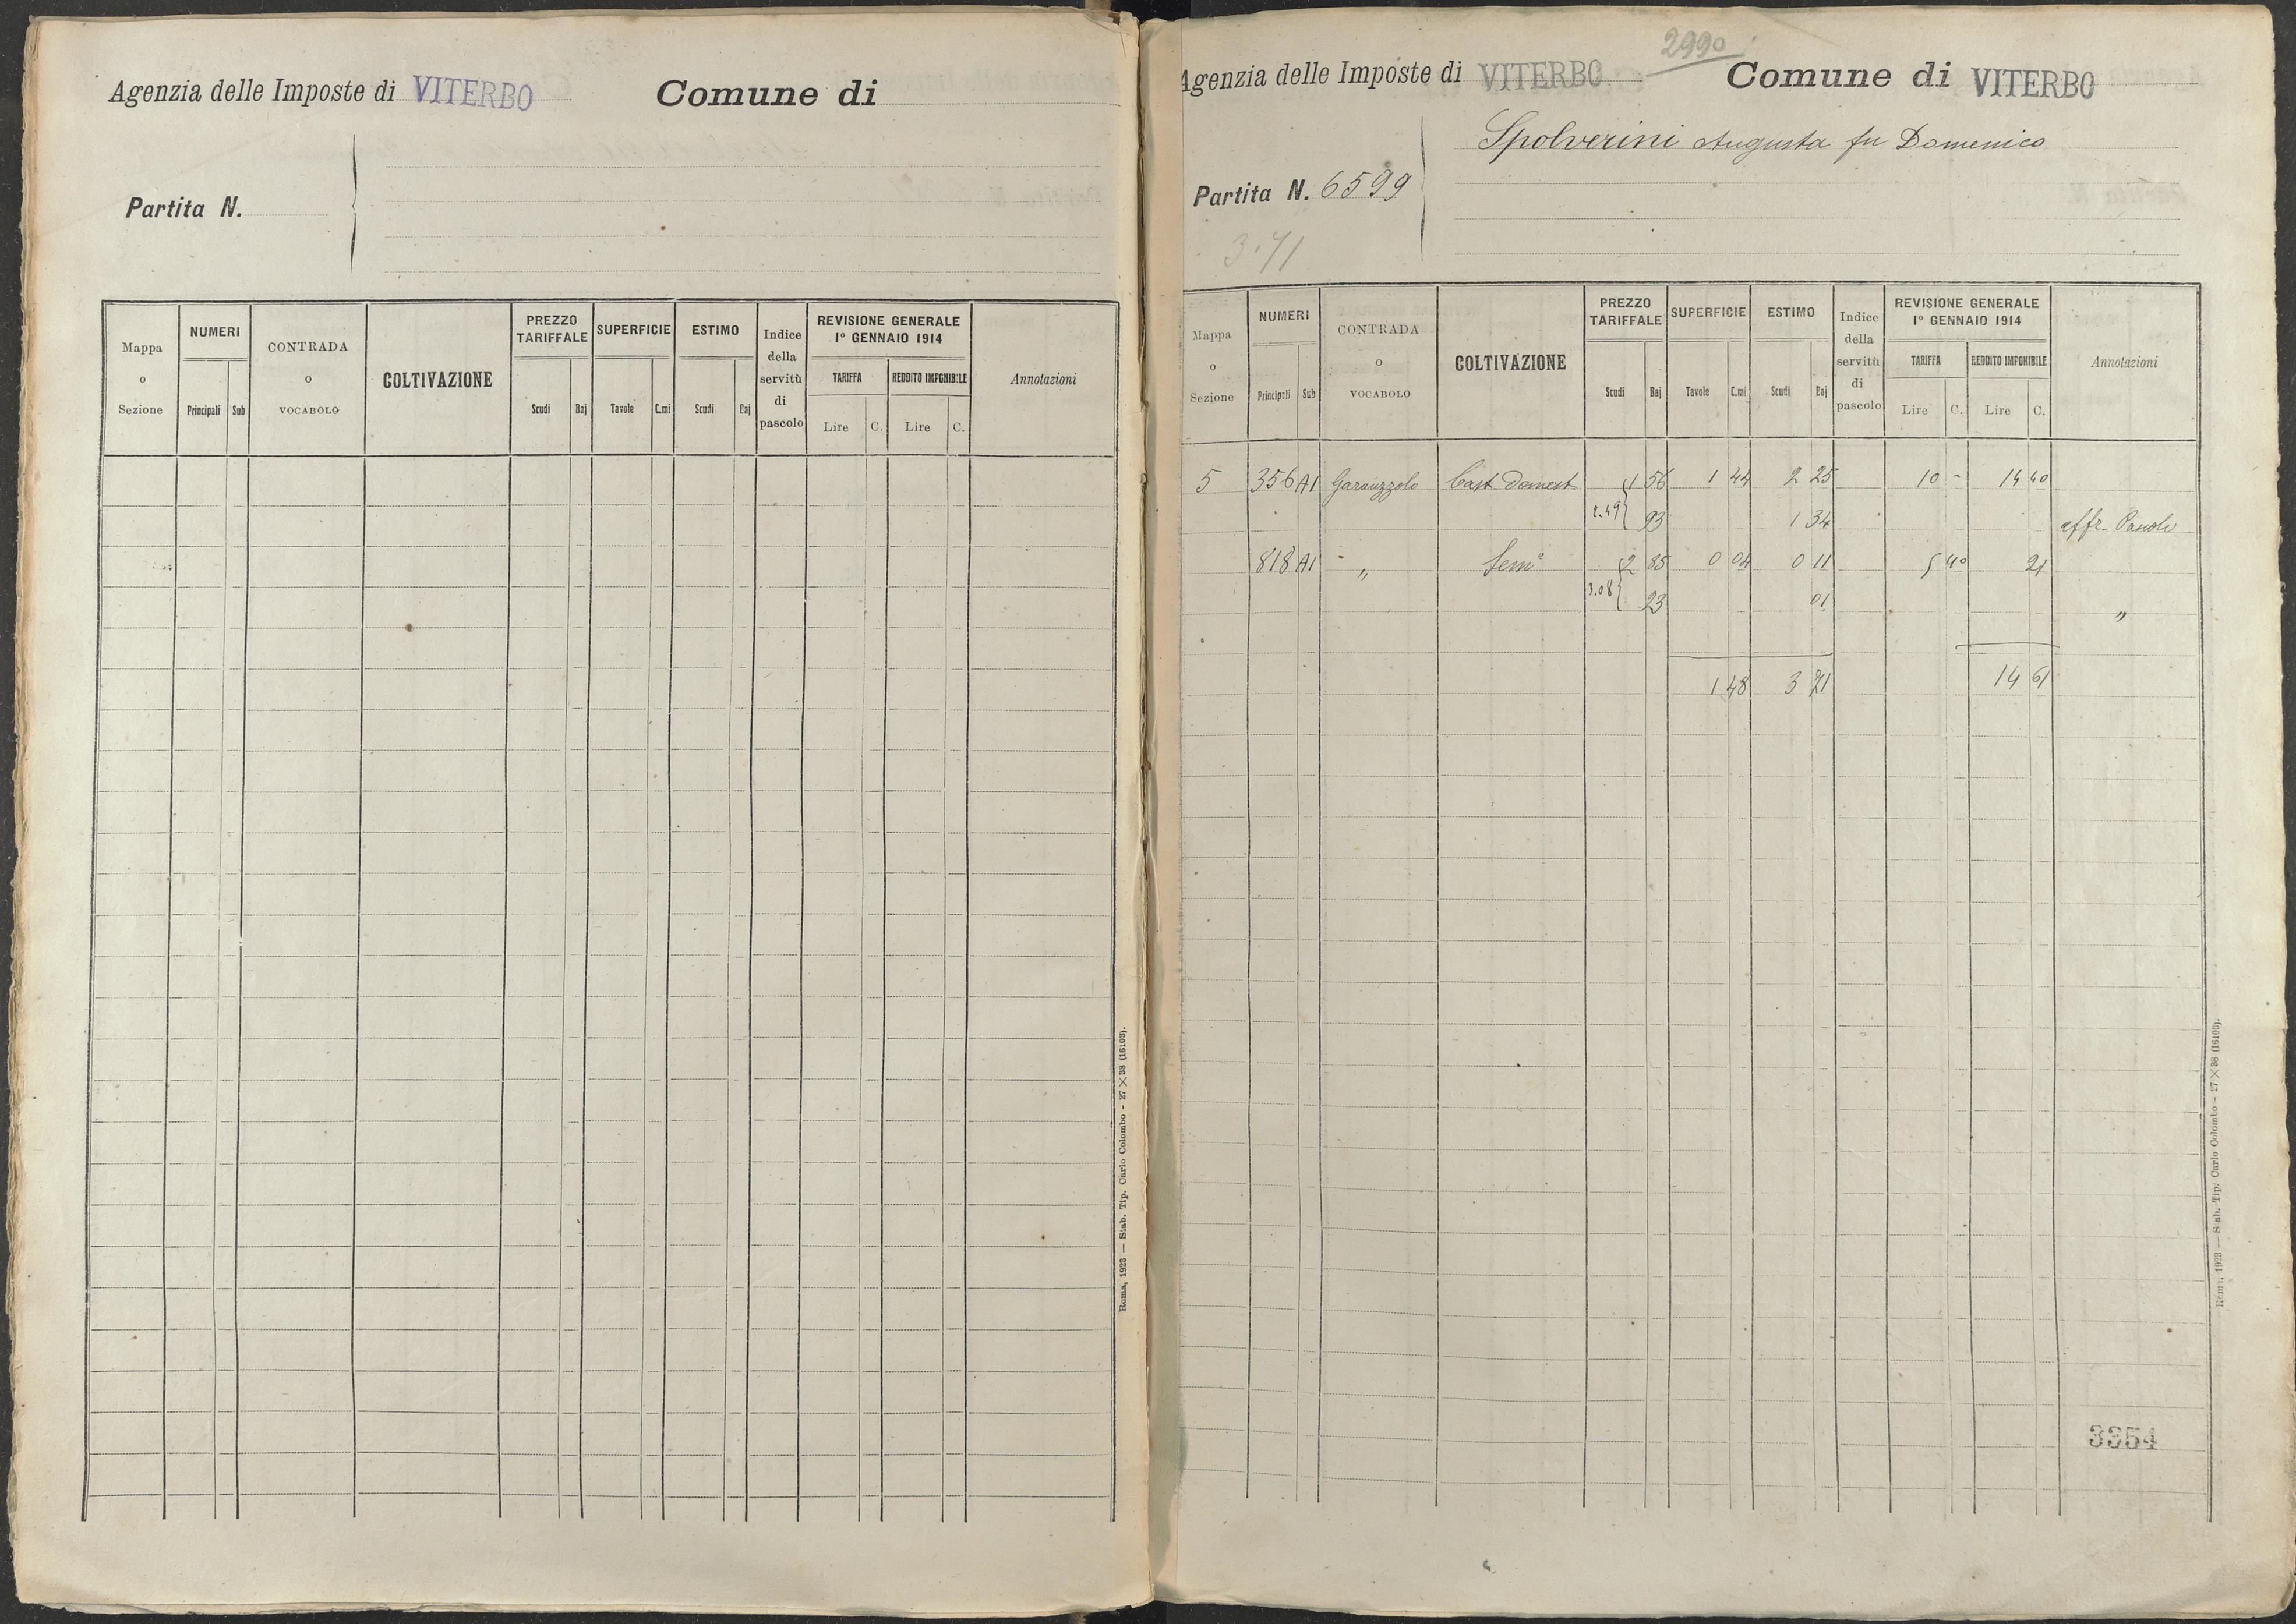 Agenzia delle Imposte di VITERBO Comune di
Partita N.
Mappa o Sezione
NUMERI
Principali Sub
CONTRADA o VOCABOLO
COLTIVAZIONE
PREZZO TARIFFALE
Scudi Baj
SUPERFICIE
Tavole C.mi
ESTIMO
Scudi Baj
Indice della servitù di pascolo
REVISIONE GENERALE
1° GENNAIO 1914
TARIFFA REDDITO IMPONIBILE
Lire C. Lire C.
Annotazioni
Roma, 1923 — Stab. Tip. Carlo Colombo - 27 X 38 (16103).
2990
Agenzia delle Imposte di VITERBO Comune di VITERBO
Spolverini Augusta fu Domenico
Partita N. 6599
3.71
Mappa o Sezione
NUMERI
Principali Sub
CONTRADA o VOCABOLO
COLTIVAZIONE
PREZZO TARIFFALE
Scudi Baj
SUPERFICIE
Tavole C.mi
ESTIMO
Scudi Baj
Indice della servitù di pascolo
REVISIONE GENERALE
1° GENNAIO 1914
TARIFFA REDDITO IMPONIBILE
Lire C. Lire C.
Annotazioni
5 356 A1 Garauzzolo Cast. Domest 1 56 1 44 2 25 10 - 14 40
2.49 93 1 34 affr.
818 A1 " Sem° 2 85 0 04 0 11 5 40 21
3.08 23 01 "
1 48 3 71 14 61
3354
Roma, 1923 — Stab. Tip. Carlo Colombo - 27 X 38 (16103).